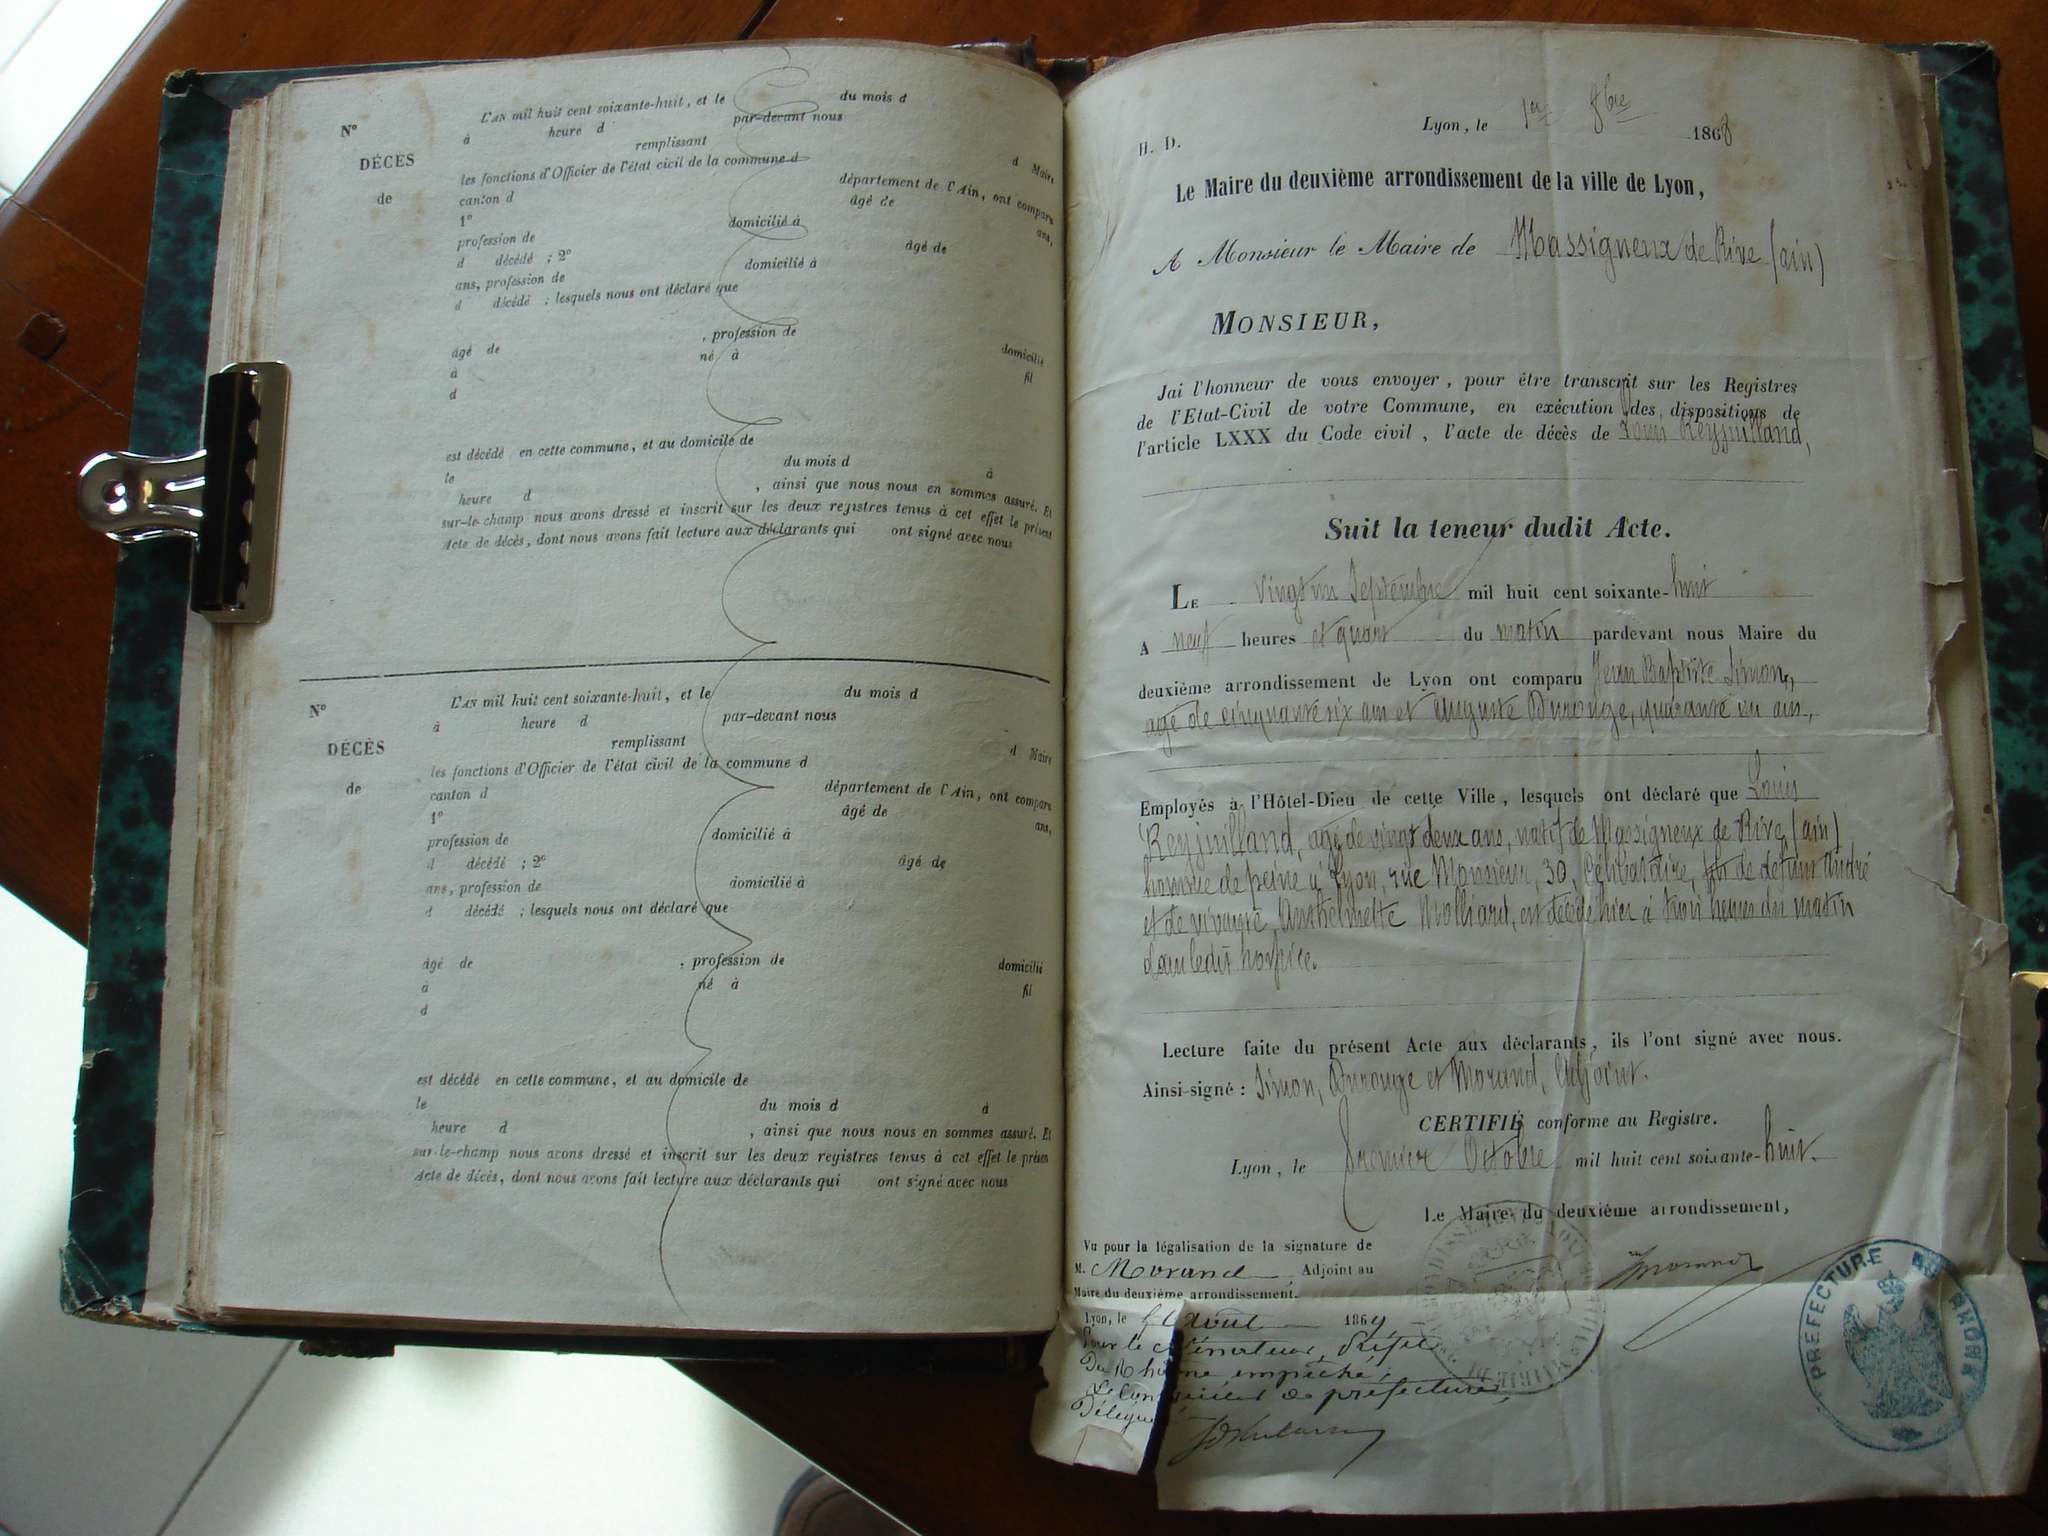 N°
DÉCÈS
de
L'AN mil huit cent soixante-huit, et le du mois d
à heure d par-devant nous
remplissant d Maire
les fonctions d'Officier de l'état civil de la commune d
canton d département de l'Ain, ont comparu
1° âgé de ans,
profession de domicilié à
d décédé ; 2° âgé de
ans, profession de domicilié à
d décédé ; lesquels nous ont déclaré que
, profession de
âgé de né à domicilié
à fil
d
est décédé en cette commune, et au domicile de
le du mois d à
heure d , ainsi que nous nous en sommes assuré. Et
sur-le-champ nous avons dressé et inscrit sur les deux registres tenus à cet effet le présent
Acte de décès, dont nous avons fait lecture aux déclarants qui ont signé avec nous
N°
DÉCÈS
de
L'AN mil huit cent soixante-huit, et le du mois d
à heure d par-devant nous
remplissant d Maire
les fonctions d'Officier de l'état civil de la commune d
canton d département de l'Ain, ont comparu
1° âgé de ans,
profession de domicilié à
d décédé ; 2° âgé de
ans, profession de domicilié à
d décédé ; lesquels nous ont déclaré que
âgé de , profession de domicilié
à né à fil
d
est décédé en cette commune, et au domicile de
le du mois d à
heure d , ainsi que nous nous en sommes assuré. Et
sur-le-champ nous avons dressé et inscrit sur les deux registres tenus à cet effet le présen
Acte de décès, dont nous avons fait lecture aux déclarants qui ont signé avec nous
H. D.
Lyon, le 1er 8bre 1868
Le Maire du deuxième arrondissement de la ville de Lyon,
A Monsieur le Maire de Massigneux de Rive (ain)
MONSIEUR,
Jai l'honneur de vous envoyer, pour être transcrit sur les Registres
de l'Etat-Civil de votre Commune, en exécution des dispositions de
l'article LXXX du Code civil, l'acte de décès de Louis Reyjuilland,
Suit la teneur dudit Acte.
LE vingt un Septembre mil huit cent soixante-huit
A neuf heures et quart du matin pardevant nous Maire du
deuxième arrondissement de Lyon ont comparu Jean Baptiste Simon,
agé de cinquante six ans et Auguste Durouge, quarante un ans,
Employés à l'Hôtel-Dieu de cette Ville, lesquels ont déclaré que Louis
Reyjuilland, agé de vingt deux ans, natif de Massigneux de Rive (ain)
homme de peine à Lyon, rue Monsieur, 30, Célibataire, fils de defunt André
et de vivante Anthelmette Molliard, est décédé hier à trois heures du matin
dans ledit hospice.
Lecture faite du présent Acte aux déclarants, ils l'ont signé avec nous.
Ainsi signé : Simon, Durouge et Morand, Adjoint.
CERTIFIÉ conforme au Registre.
Lyon, le Premier Octobre mil huit cent soixante-huit.
Le Maire du deuxième arrondissement,
Morand
Vu pour la légalisation de la signature de
M. Morand, Adjoint au
Maire du deuxième arrondissement.
Lyon, le août 1869
Pour le Sénateur, Préfet
Du Rhône empêché,
Le Conseiller de préfecture,
Délégué
PRÉFECTURE DU RHONE